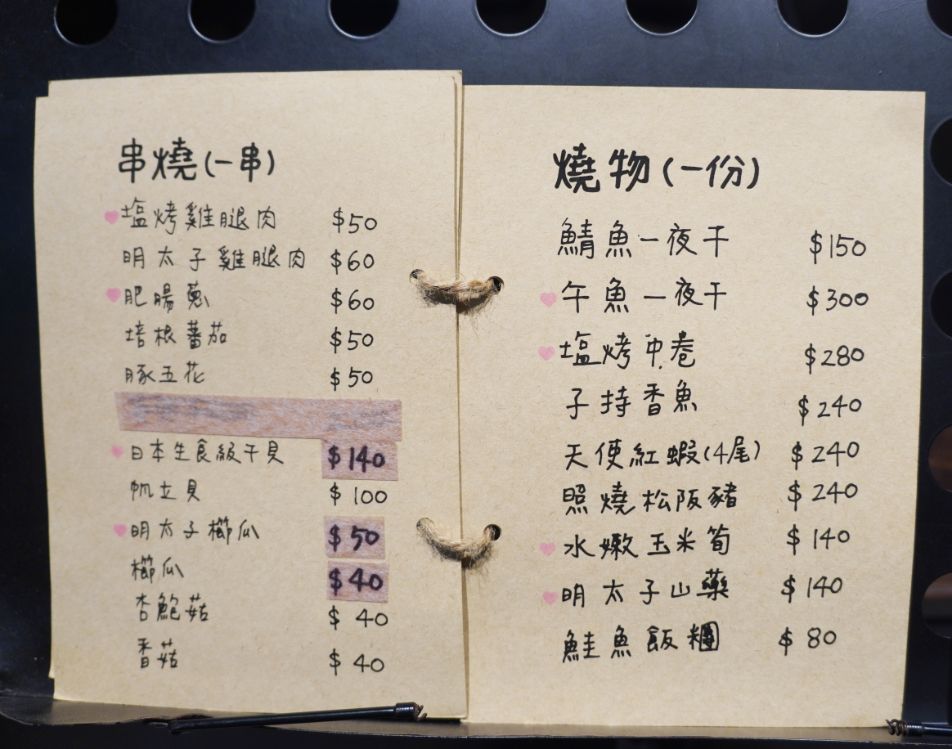 串燒(一串)
塩烤雞腿肉 $50
明太子雞腿肉 $60
肥腸蔥 $60
培根蕃茄 $50
豚五花 $50
日本生食級干貝 $140
帆立貝 $100
明太子櫛瓜 $50
櫛瓜 $40
杏鮑菇 $40
香菇 $40
燒物(一份)
鯖魚一夜干 $150
午魚一夜干 $300
塩烤中卷 $280
子持香魚 $240
天使紅蝦(4尾) $240
照燒松阪豬 $240
水嫩玉米筍 $140
明太子山藥 $140
鮭魚飯糰 $80